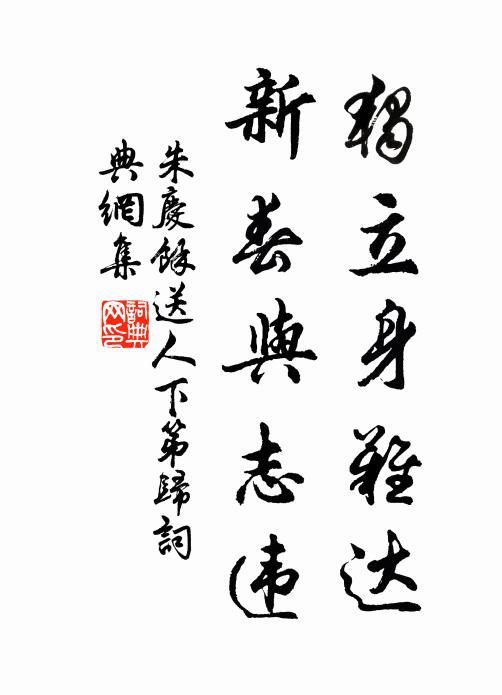 獨立身難达
新春與志违
朱慶餘送人下第歸詞
典網集
詞典
网印